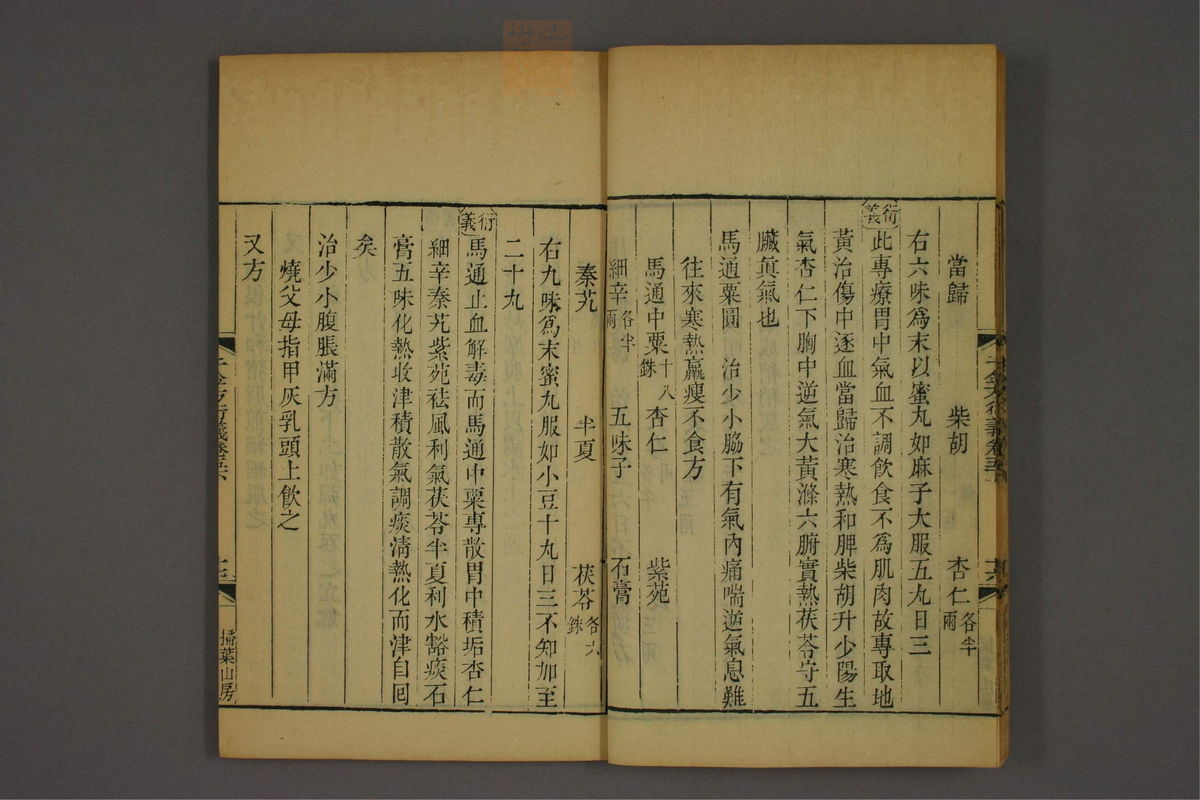 當歸　柴胡　杏仁各半兩
右六味爲末以蜜丸如麻子大服五丸日三
衍義此專療胃中氣血不調飲食不爲肌肉故專取地
黃治傷中逐血當歸治寒熱和脾柴胡升少陽生
氣杏仁下胸中逆氣大黃滌六腑實熱茯苓守五
臟眞氣也
馬通粟圓　治少小脇下有氣內痛喘逆氣息難
往來寒熱羸瘦不食方
馬通中粟十八銖　杏仁　紫苑
細辛各半兩　五味子　石膏
秦艽　半夏　茯苓各六銖
右九味爲末蜜丸服如小豆十九日三不知加至
二十九
衍義馬通止血解毒而馬通中粟專散胃中積垢杏仁
細辛秦艽紫苑祛風利氣茯苓半夏利水豁痰石
膏五味化熱收津積散氣調痰淸熱化而津自囘
矣
治少小腹脹滿方
燒父母指甲灰乳頭上飲之
又方
掃葉山房